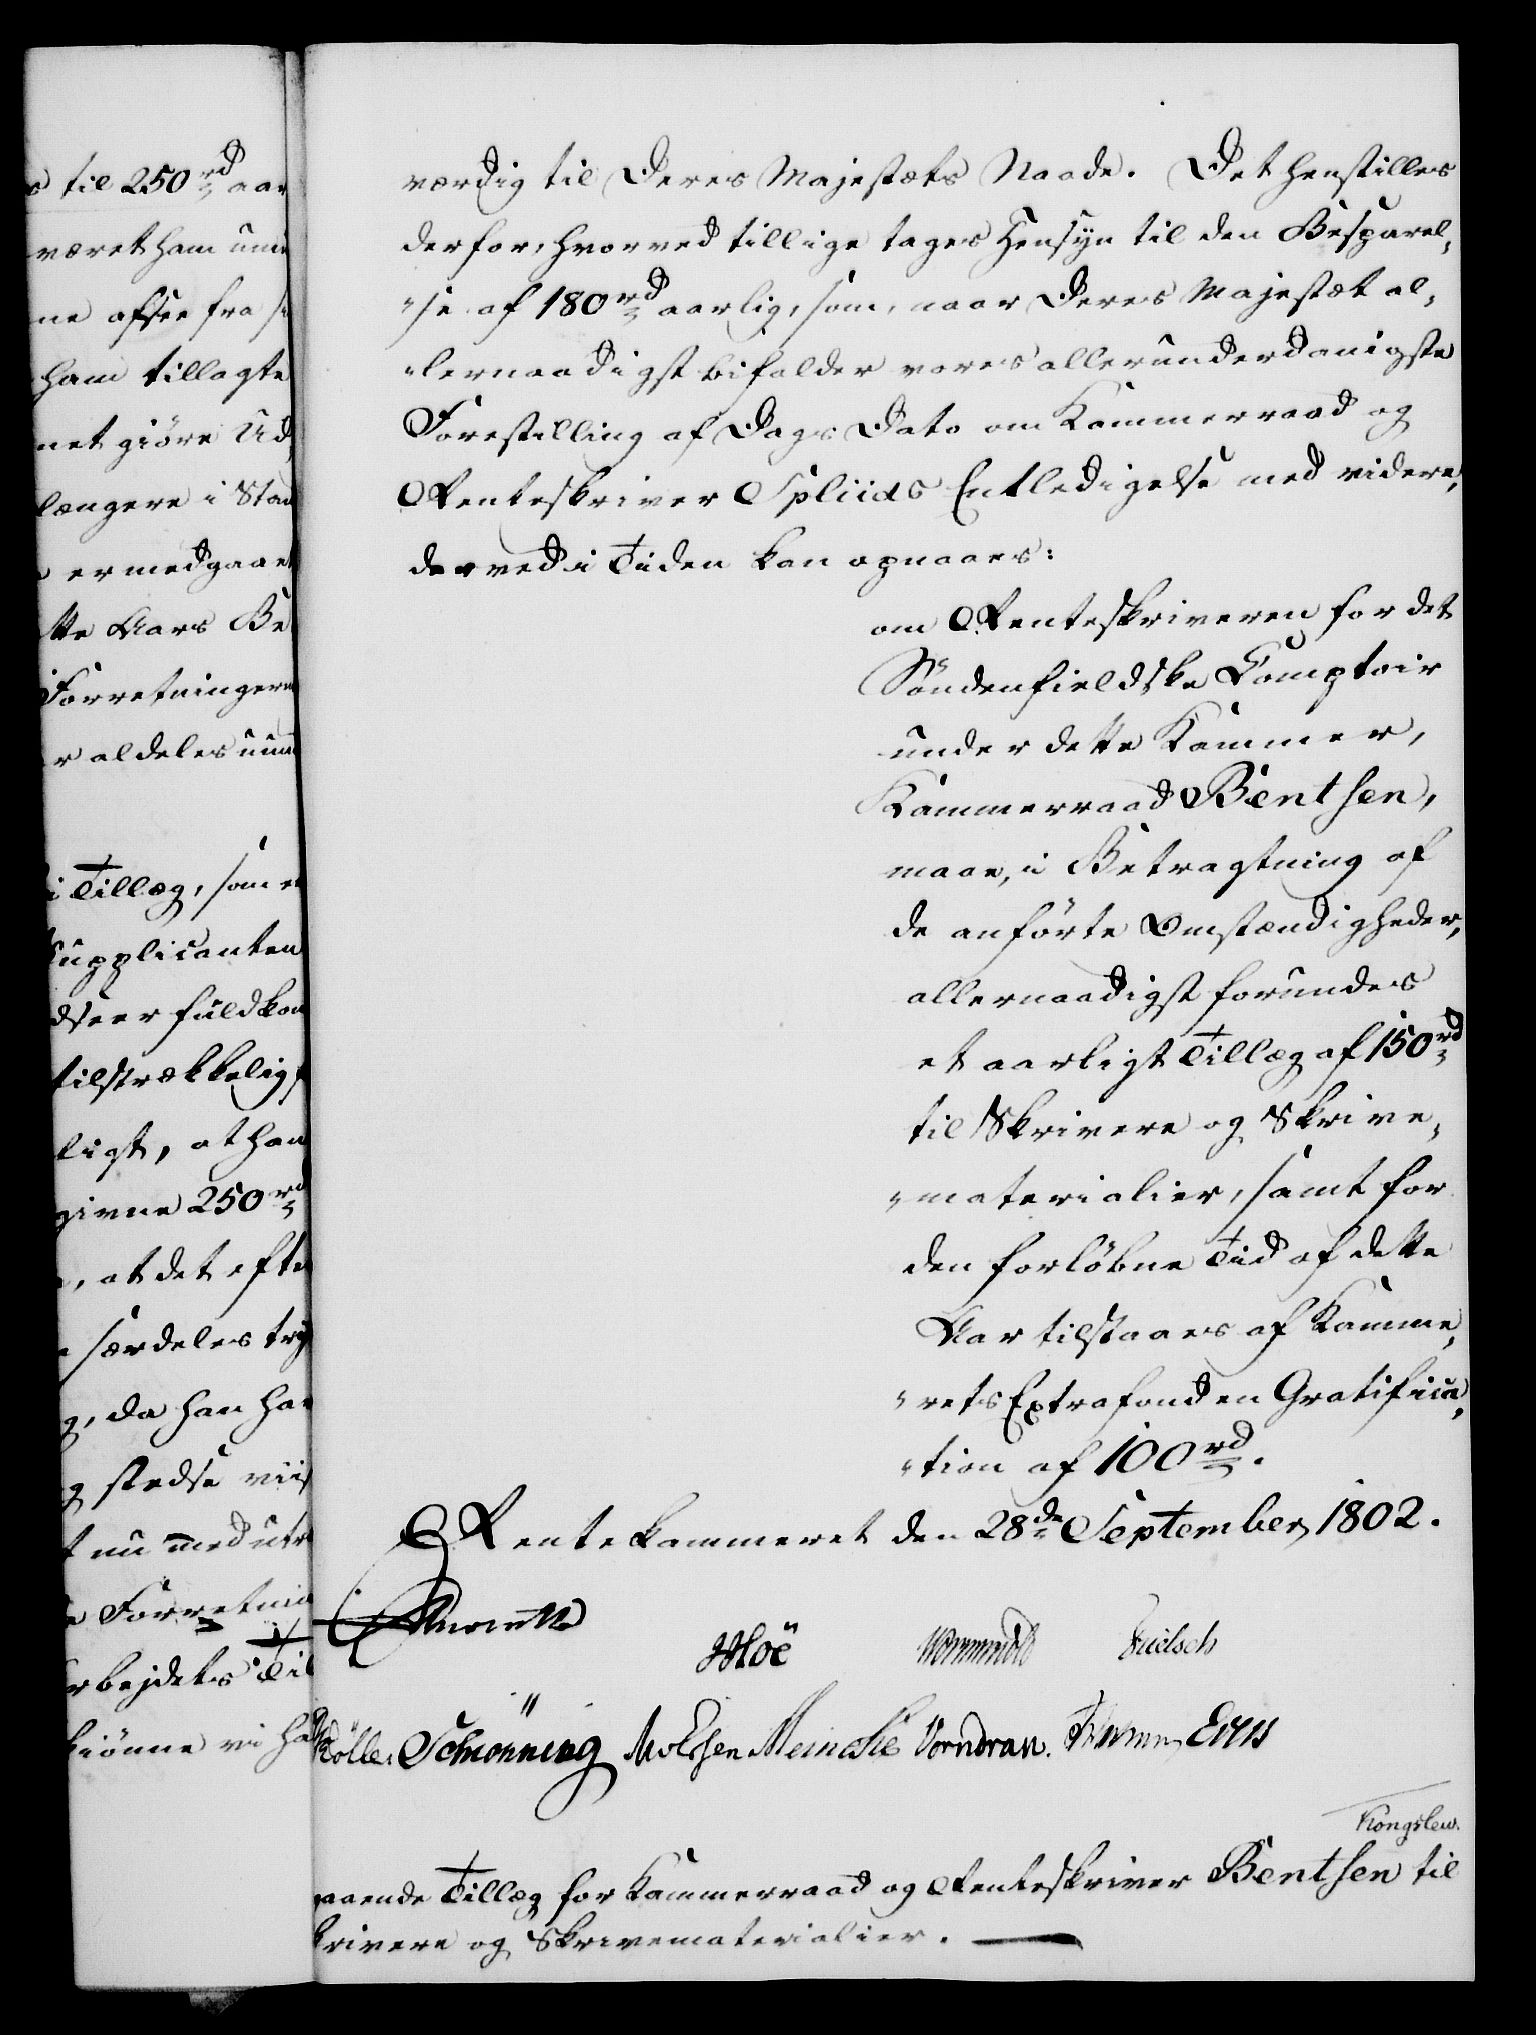 s til 250 rd aar
været ham unn
ne afsee fra s
ham tillagte
net giöre Ud
længere i Stan
er medgaaet
tte Aars Be
Forretningern
r aldeles uun
i Tillæg, som e
Supplicanten
dseer fuldkom
tilstrækkelig
ligt, at han
givne 250 rd
, at det efte
særdeles try
g, da han har
g stedse viis
t nu med utr
e Forretnin
rbejdets Til
kiönne vi ha
værdig til Deres Majestæts Naade. Det henstilles
derfor, hvorved tillige tages Hensyn til den Besparel„
„se af 180 rd aarlig, som, naar Deres Majestæt al„
„lernaadigst bifalder vores allerunderdanigste
Forestilling af Dags Dato om Kammerraad og
Renteskriver Spliids Entledigelse med videre,
derved i Tiden kan opnaaes:
om Renteskriveren for det
Söndenfieldske Comptoir
under dette Kammer,
Kammerraad Bentsen,
maae, i Betragtning af
de anförte Omstændigheder,
allernaadigst forundes
et aarligt Tillæg af 150 rd
til Skrivere og Skrive„
„materialier, samt for
den forlöbne Tid af dette
Aar tilstaaes af Kamme„
„rets Extrafond en Gratifica„
„tion af 100 rd.
Rentekammeret den 28de September 1802.
Moë Wormskiold
Schiönning Meincke Vorndran.
Kongslew.
aaende Tillæg for Kammerraad og Renteskriver Bentsen til
krivere og Skrivematerialier.